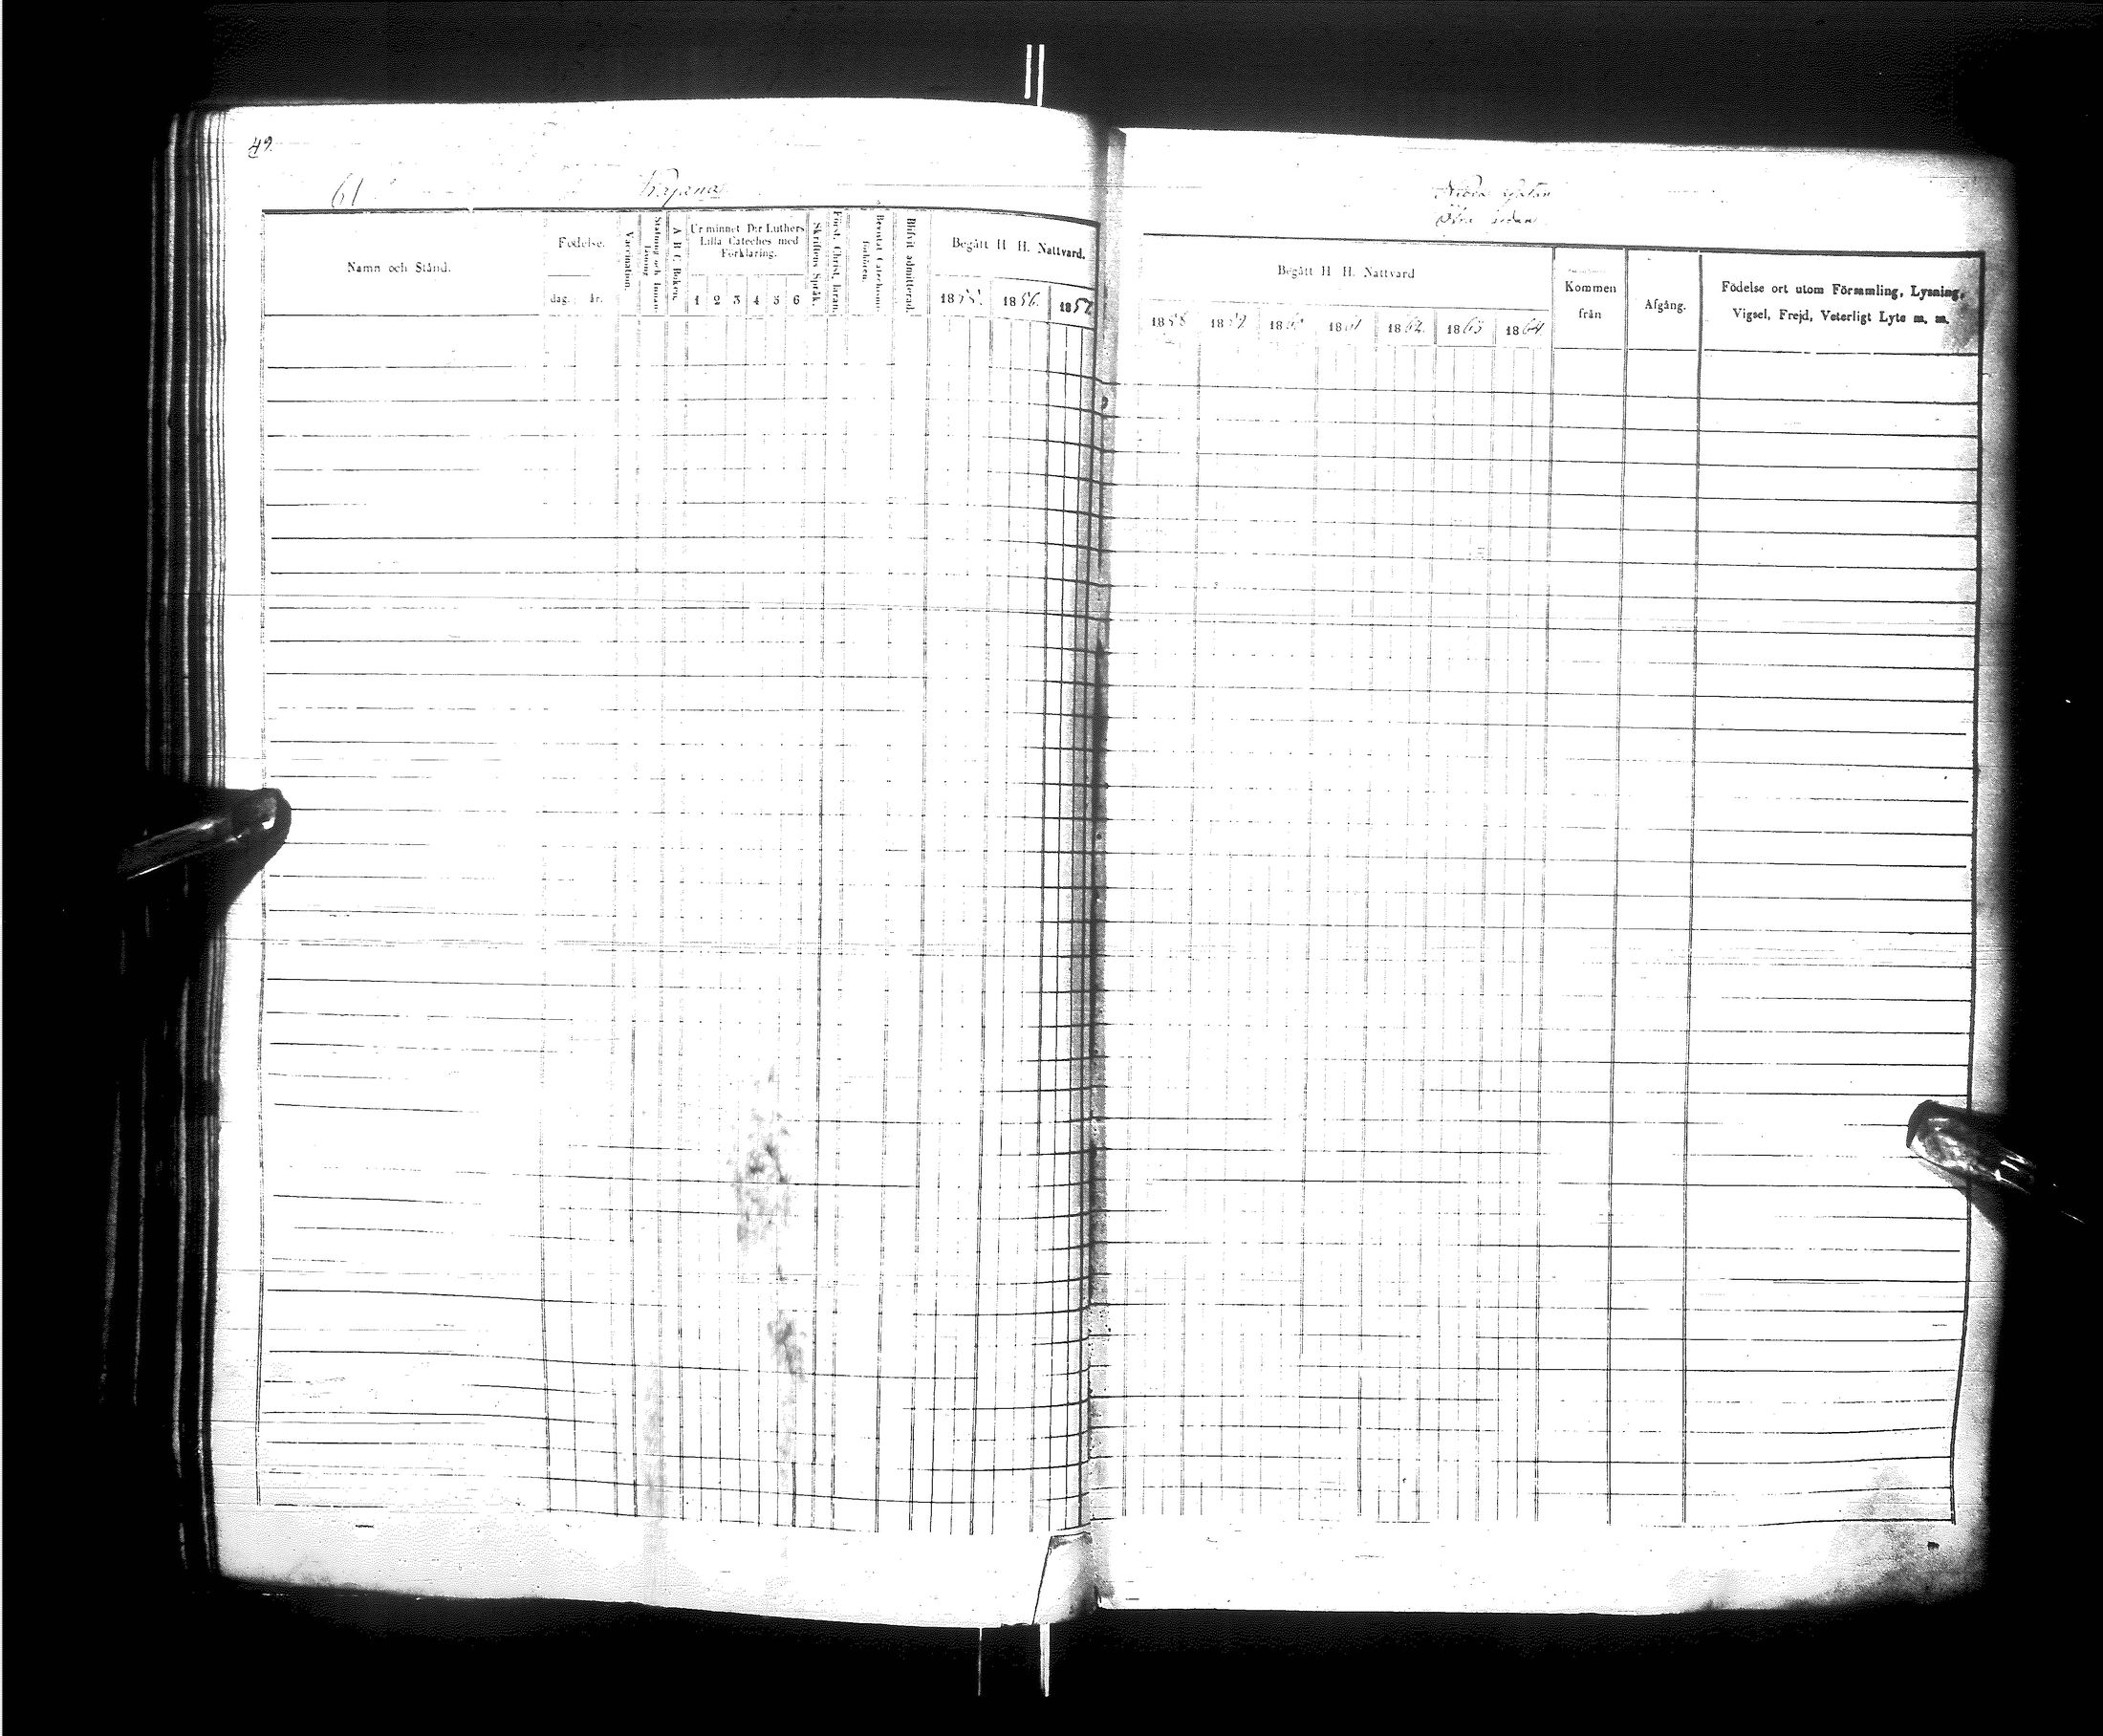 49.
61
Kajana
Namn och Stånd.
Födelse.
dag. år.
Vaccination.
Stafning och Innanläsning.
A B C Boken.
Ur minnet D:r Luthers
Lilla Cateches med
Förklaring.
1 2 3 4 5 6
Skriftens Språk.
Först. Christ. läran.
förhören.
Blifvit admitterad.
Begått H H. Nattvard.
1855. 1856. 1857.
Begått H H. Nattvard
1858 1859 1860 1861 1862 1863 1864
Kommen
från
Afgång.
Födelse ort utom Församling, Lysning,
Vigsel, Frejd, Veterligt Lyte m. m.